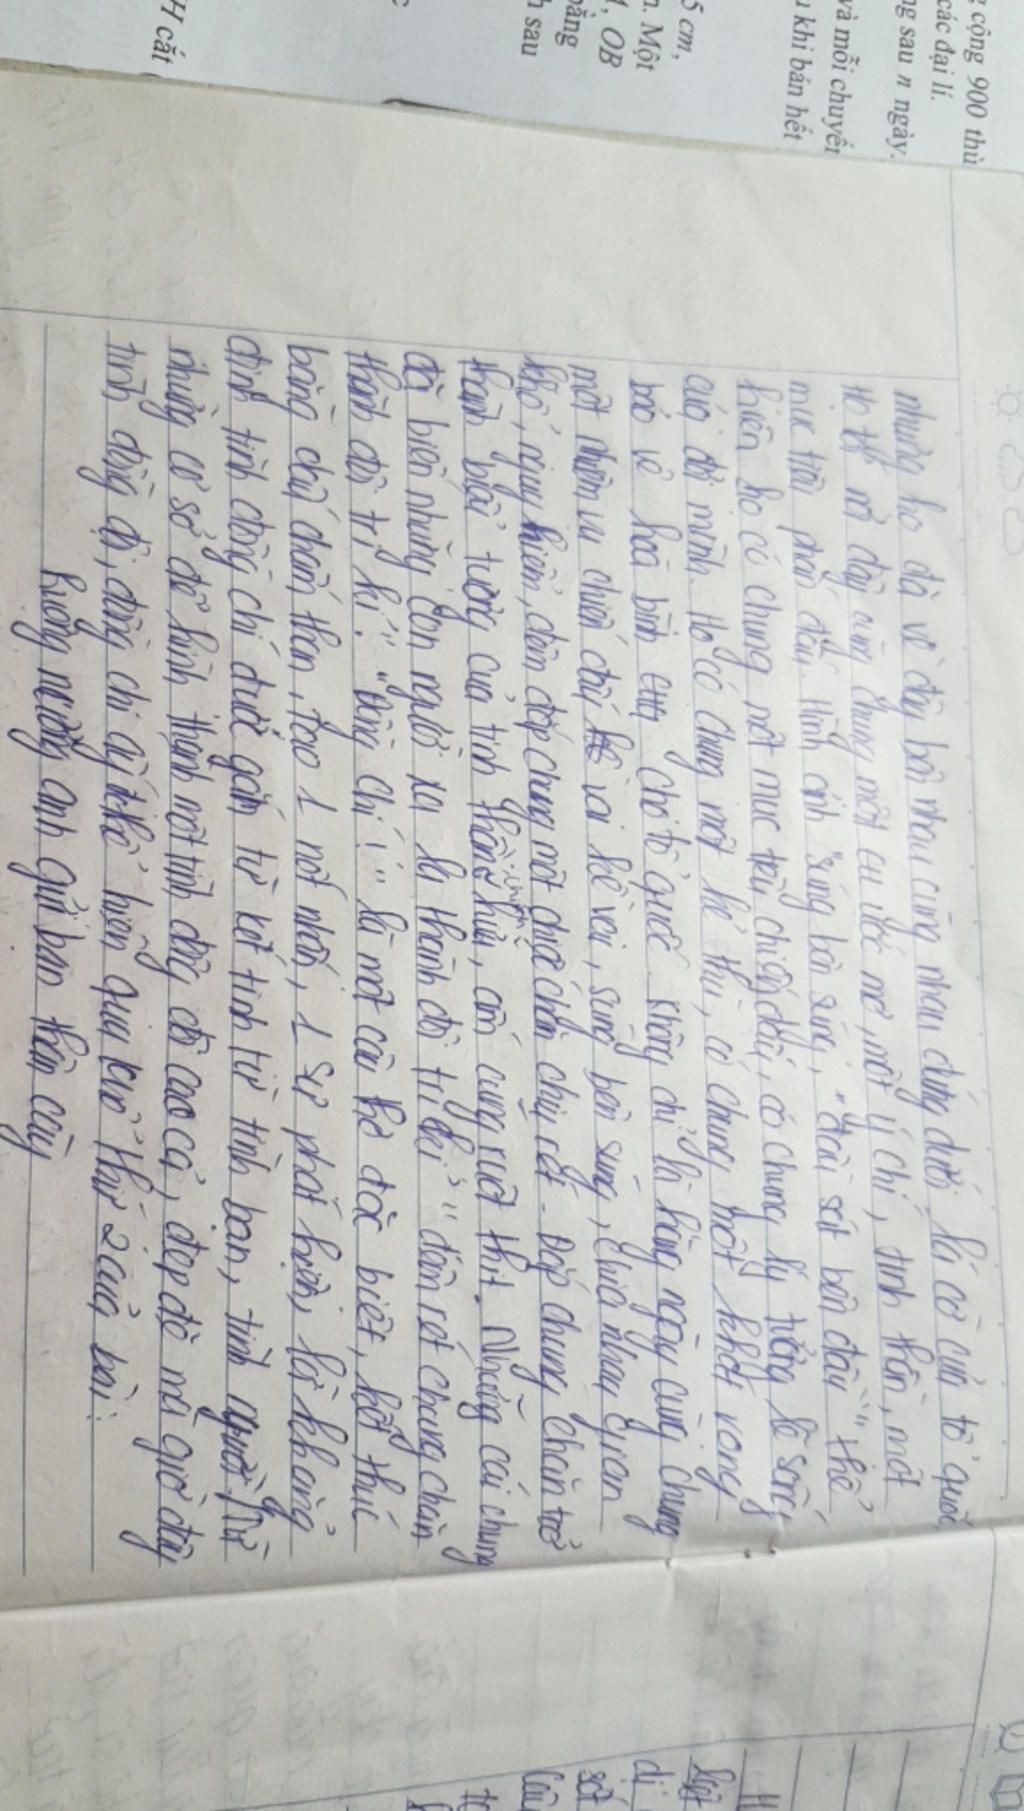 g cộng 900 thù
các đại lí.
ng sau n ngày.
và mỗi chuyến
u khi bán hết
5 cm,
n. Một
1, OB
bằng
h sau
H cắt
nhưng họ đã về đây bên nhau cùng nhau đứng dưới lá cờ của tổ quốc
mà đây cùng chung một ước mơ, một ý chí, tinh thần, một
mục tiêu phấn đấu. Hình ảnh "súng bên súng, "đầu sát bên đầu" thể
hiện họ có chung một mục tiêu chiến đấu, có chung lý tưởng lẽ sống
của đời mình. Họ có chung một kẻ thù, có chung một khát vọng
bảo vệ hoà bình cho tổ quốc. Không chỉ là hàng ngày cùng chung
một nhiệm vụ chiến đấu vai kề vai, súng bên súng, chia nhau gian
khổ, nguy hiểm, đêm đắp chung một chiếc chăn chịu rét. Đắp chung chăn trở
thành biểu tượng của tình thân hữu, ấm cúng ruột thịt. Những cái chung
đã biến những con người xa lạ thành đôi tri kỉ" đêm rét chung chăn
thành đôi tri kỉ". "Đồng chí!" là một câu thơ đặc biệt, kết thúc
bằng dấu chấm than, tạo 1 nốt nhấn, 1 sự phát hiện, lời khẳng
định tình đồng chí được gắn từ kết tinh từ tình bạn, tình người. Từ
những cơ sở để hình thành nên tình đồng đội cao cả, đẹp đẽ mà giờ đây
tình đồng đội, đồng chí ấy thể hiện qua khổ thứ 2 của bài:
Ruộng nương anh gửi bạn thân cày